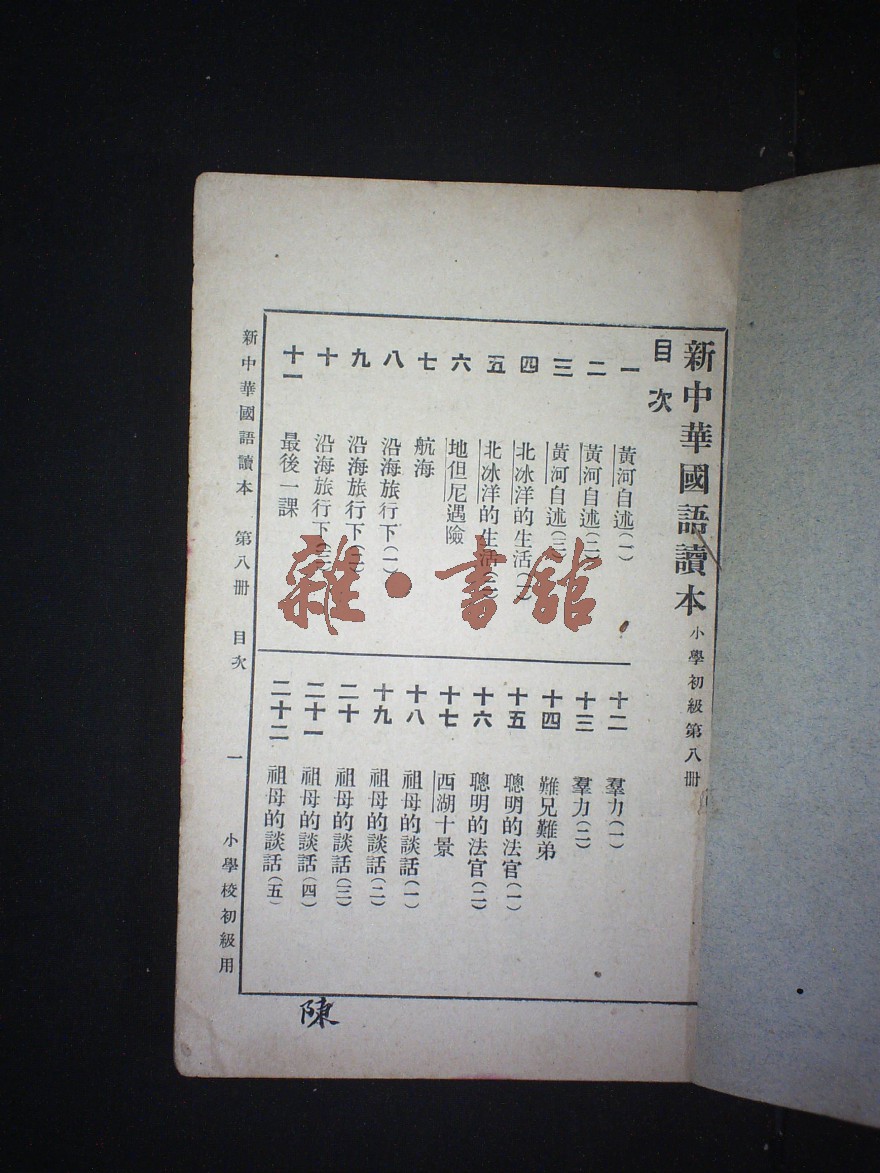 新中華國語讀本 小學初級第八冊
目次
一 黃河自述(一)
二 黃河自述(二)
三 黃河自述(三)
四 北冰洋的生活(一)
五 北冰洋的生活(二)
六 地但尼遇險
七 航海
八 沿海旅行下(一)
九 沿海旅行下(二)
十 沿海旅行下(三)
十一 最後一課
十二 羣力(一)
十三 羣力(二)
十四 難兄難弟
十五 聰明的法官(一)
十六 聰明的法官(二)
十七 西湖十景
十八 祖母的談話(一)
十九 祖母的談話(二)
二十 祖母的談話(三)
二十一 祖母的談話(四)
二十二 祖母的談話(五)
新中華國語讀本 第八冊 目次 一 小學校初級用
陳
雜·書館